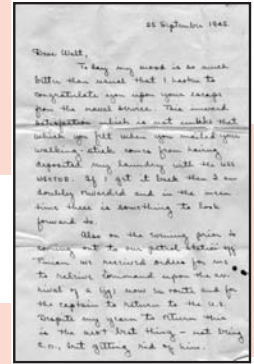 25 September 1945.
Dear Walt,
To day my mood is so much
better than usual that I hasten to
congratulate you upon your escape
from the naval service. This inward
satisfaction which is not unlike that
which you felt when you mailed your
walking-stick comes from having
deposited my laundry with the USS
If I get it back then I am
doubly rewarded and in the mean
time there is something to look
forward to.
Also on the evening prior to
coming out to our patrol station off
we received orders for me
to relieve command upon the ar-
rival of a Ltjg now en route and for
the captain to return to the U.S.
Despite my yearn to return this
is the next best thing - not being
C.O., but getting rid of him.